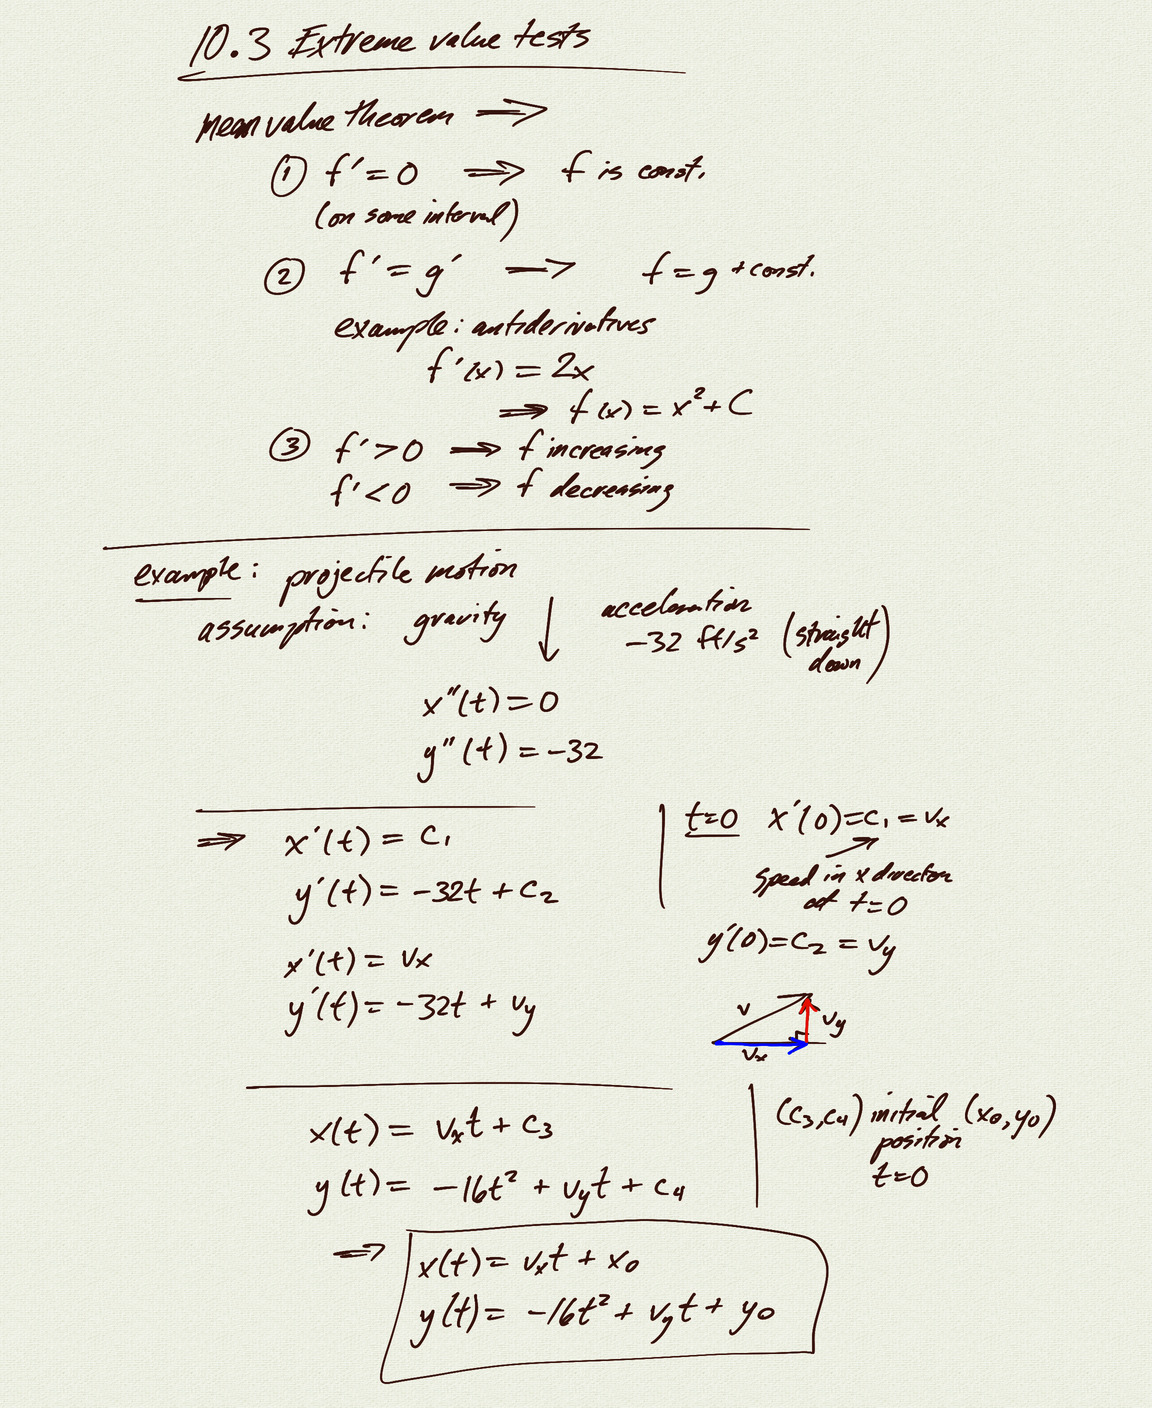 10.3 Extreme value tests
mean value theorem ⟹
① f' = 0 ⟹ f is const.
(on some interval)
② f' = g' ⟶ f = g + const.
example: antiderivatives
f'(x) = 2x
⟹ f(x) = x² + C
③ f' > 0 ⟹ f increasing
f' < 0 ⟹ f decreasing
example: projectile motion
assumption: gravity ↓ acceleration
-32 ft/s² (straight
down)
x''(t) = 0
y''(t) = -32
⟹ x'(t) = C₁
y'(t) = -32t + C₂
x'(t) = vx
y'(t) = -32t + vy
t=0 x'(0) = C₁ = vx
speed in x direction
at t=0
y'(0) = C₂ = vy
v
vy
vx
x(t) = vxt + C₃
y(t) = -16t² + vyt + C₄
(C₃, C₄) initial (x₀, y₀)
position
t=0
⟹ x(t) = vxt + x₀
y(t) = -16t² + vyt + y₀